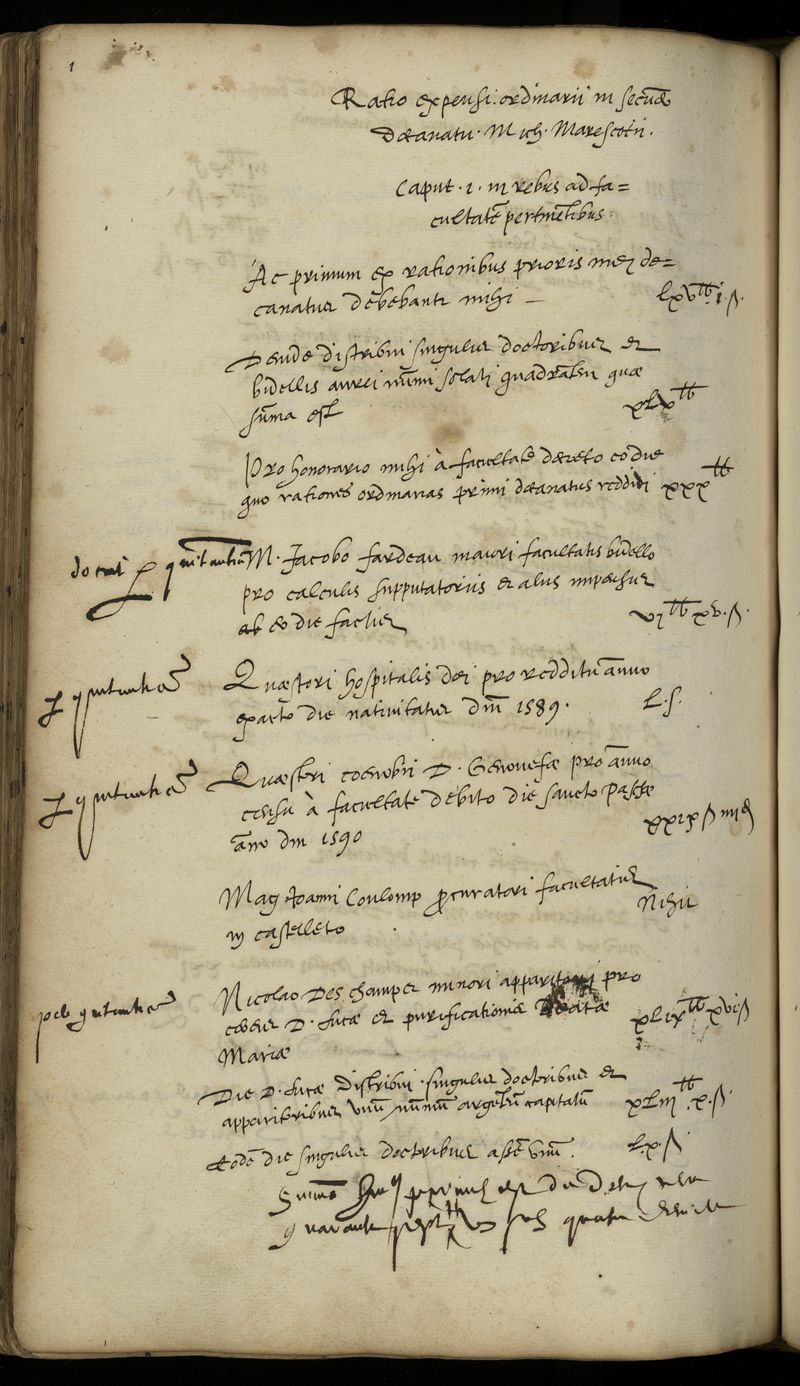 1
Ratio expensi ordinarii in secūdo
Decanatu. Mich. Marescotii.
Caput. 1. in rebus ad fa=
cultatē pertinētibus.
Ac primum ex rationibus prioris mei de=
canatus debebant mihi — lxv℔. i. s.
Deinde distribui singulis doctoribus et
bidellis aurei nūmi solati quadrātem quae
sūma est xlx℔
Pro honorario mihi à facultate decreto eo die
quo rationes ordinarias primi decanatus reddidi xxx℔
M. Jacobo Fardeau maiori facultatis bidello
pro calculis supputatoriis et aliis impēsis
ab eo die factis vi℔ xv. s.
Quaestori hospitalis dei pro redditu annuo
exacto die nativitatis Dm̄ 1589. L. s.
p quittantiā
Quaestori coenobii D. Genovefae pro annuo
censu à facultate debito die sancto Paschae
p quittantiā
āno dm 1590 xxix s iiij d
Mag Joanni Coulomp procuratori facultatis
in castelleto Nihil
Nicolao Des champs minori apparitori pro
cereis D. Lucae et purificationis Beatae
quittantiā
Mariae xlix℔ xvi s
Die D. Lucae distribui singulis doctoribus et
apparitoribus unū nūmū argētū capitatū xliij℔. x. s
Eodē die singulis doctoribus assē unū. l.x. s